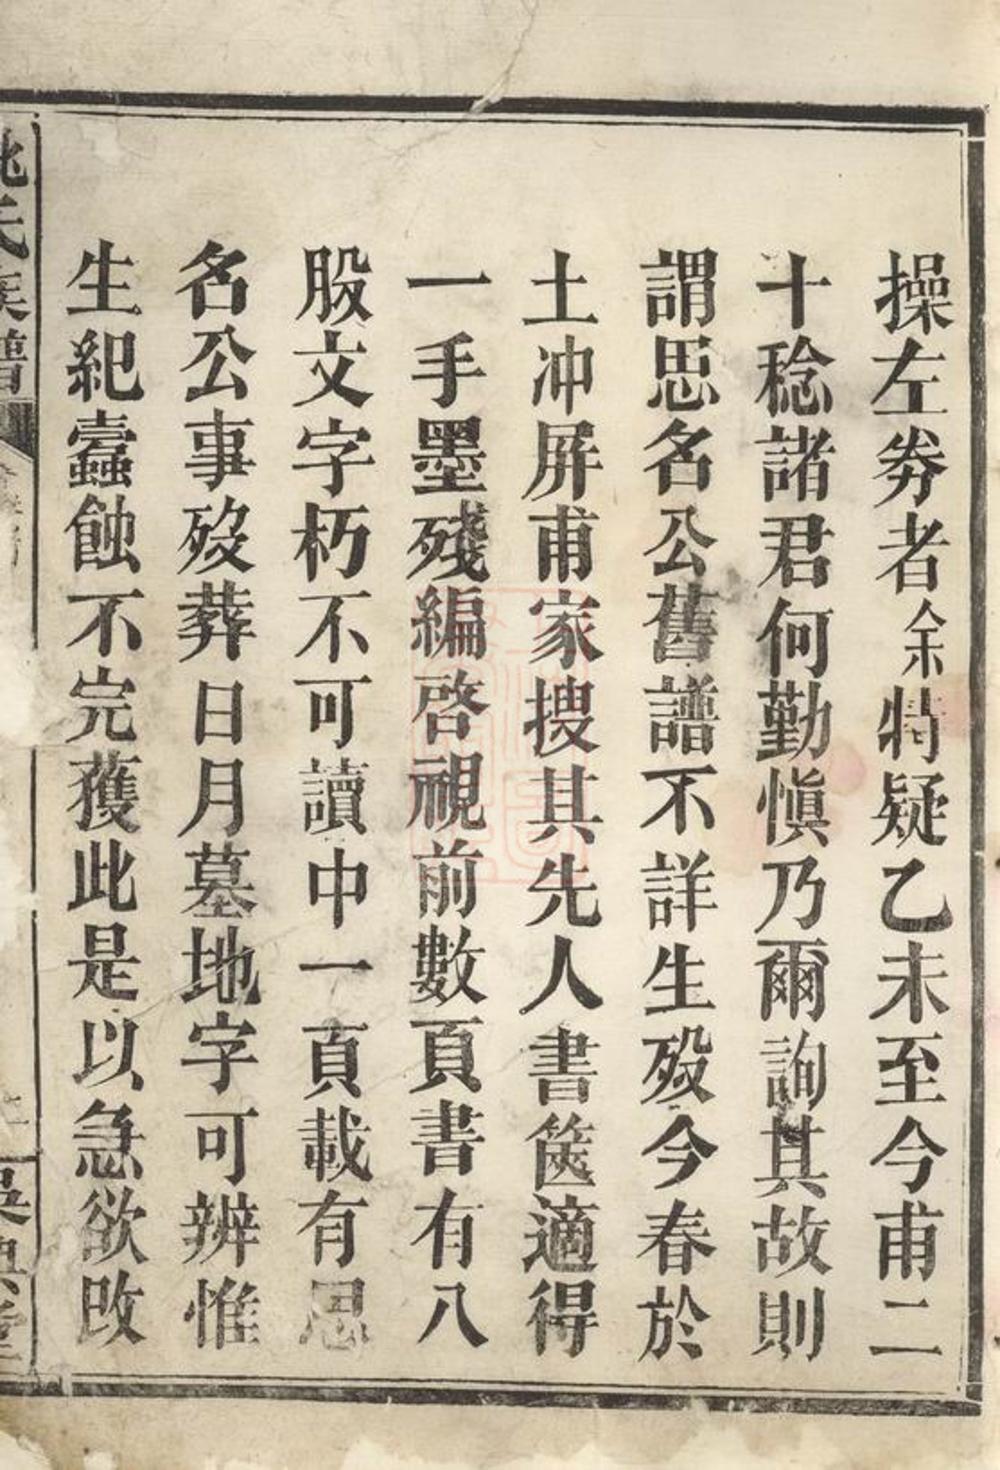 操左券者余特疑乙未至今甫二
十稔諸君何勤慎乃爾詢其故則
謂思名公舊譜不詳生殁今春於
土冲屏甫家搜其先人書箧適得
一手墨殘編啓視前數頁書有八
股文字朽不可讀中一頁載有思
名公事殁葬日月墓地字可辨惟
生紀蠹蝕不完獲此是以急欲改
氏族譜